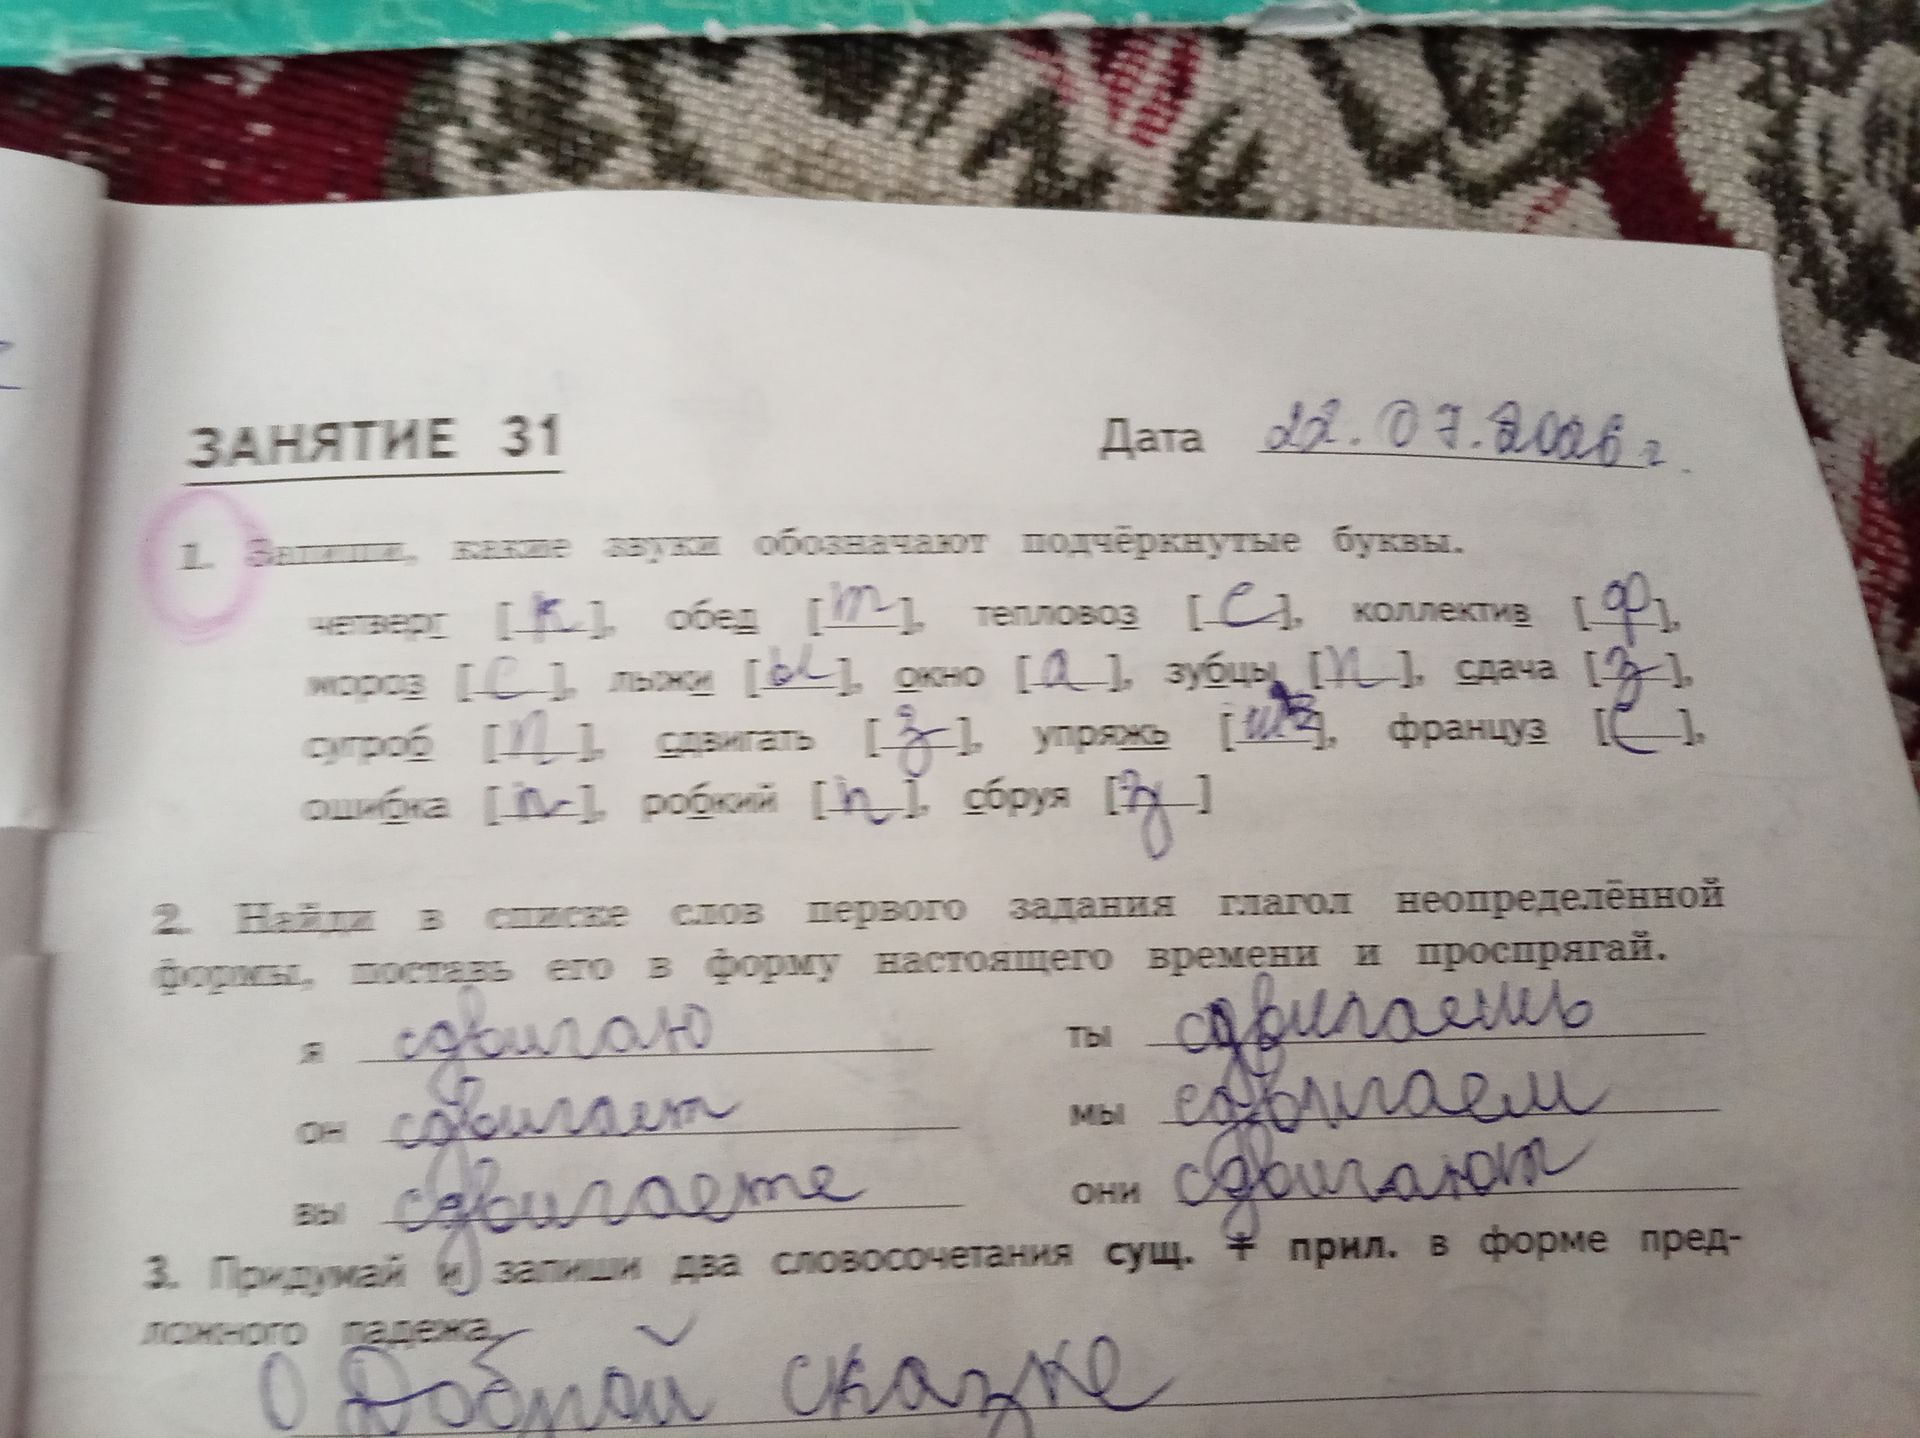 ЗАНЯТИЕ 31 Дата 22.07.2026 г.
1. Запиши, какие звуки обозначают подчёркнутые буквы.
четверг [к], обед [т], тепловоз [с], коллектив [ф],
мороз [с], лыжи [ы], окно [а], зубцы [п], сдача [з],
сугроб [п], сдвигать [з], упряжь [ш], француз [с],
ошибка [п], робкий [п], сбруя [з]
2. Найди в списке слов первого задания глагол неопределённой
формы, поставь его в форму настоящего времени и проспрягай.
я сдвигаю ты сдвигаешь
он сдвигает мы сдвигаем
вы сдвигаете они сдвигают
3. Придумай и запиши два словосочетания сущ. + прил. в форме пред-
ложного падежа.
О Доброй сказке